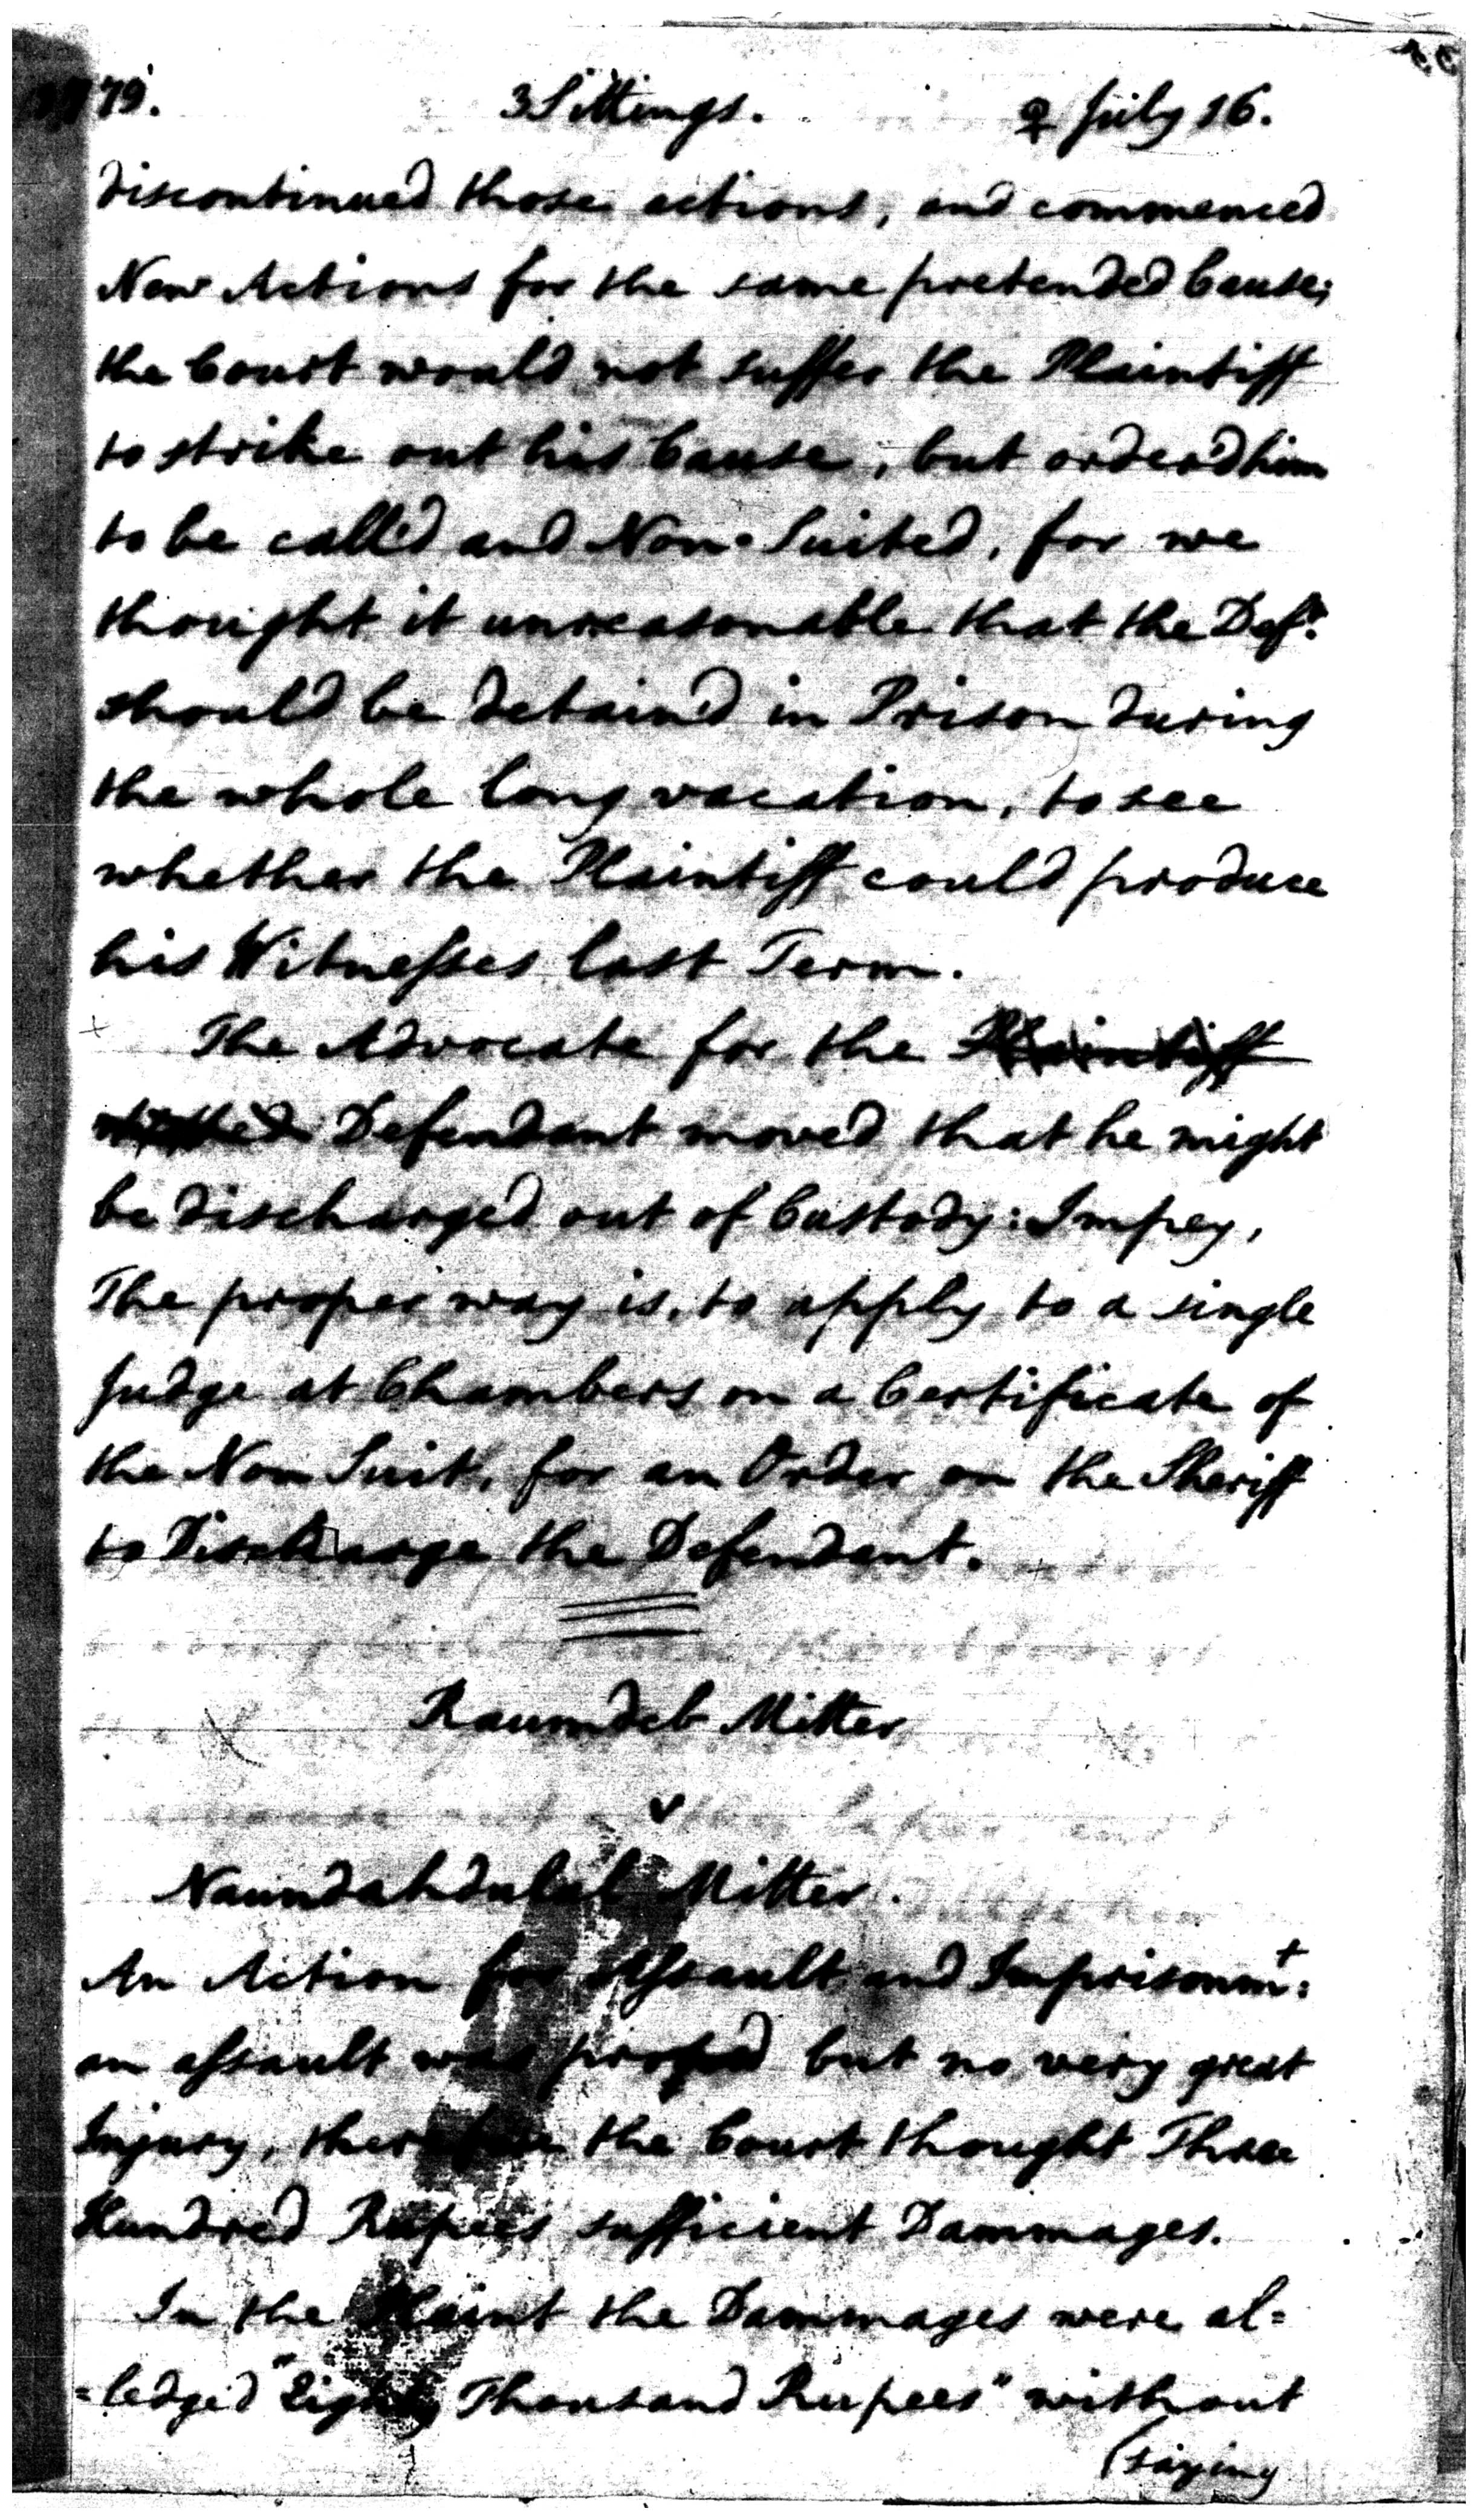 1779. 3 Sittings. ♀ July 16.
discontinued those actions, and commenced
New Actions for the same pretended Cause;
the Court would not suffer the Plaintiff
to strike out his Cause, but order'd him
to be call'd and Non-Suited, for we
thought it unreasonable that the Deft.
should be detain'd in Prison during
the whole long vacation, to see
whether the Plaintiff could produce
his Witnesses last Term.
The Advocate for the Plaintiff
Defendant moved that he might
be discharged out of Custody: Impey,
The proper way is, to apply to a single
Judge at Chambers on a Certificate of
the Non Suit, for an Order on the Sheriff
to Discharge the Defendant.
Raumdeb Mitter
v
Naundahdulal Mitter.
An Action for Assault and Imprisonmt:
an assault was proved but no very great
Injury, therefore the Court thought Three
Hundred Rupees sufficient Dammages.
In the Plaint the Dammages were al=
=ledged "Eighty Thousand Rupees" without
(saying